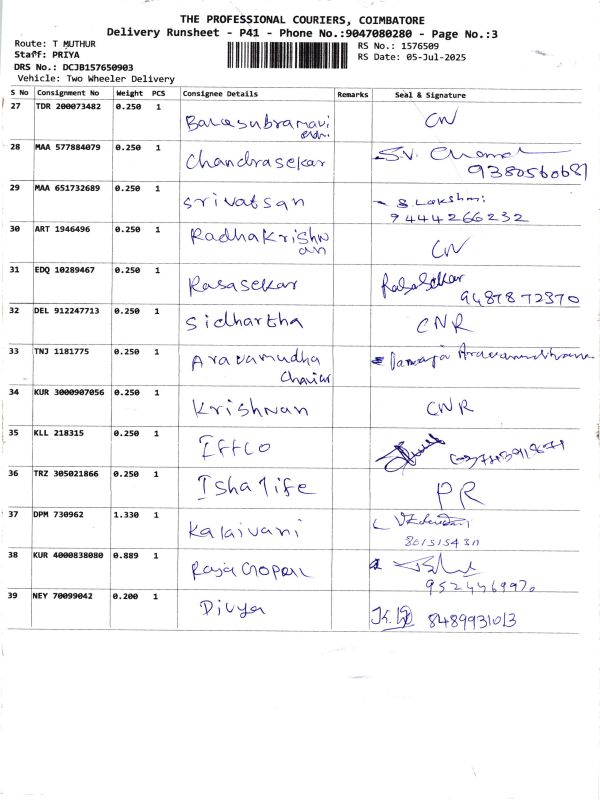 THE PROFESSIONAL COURIERS, COIMBATORE
Delivery Runsheet - P41 - Phone No.:9047080280 - Page No.:3
Route: T MUTHUR
Staff: PRIYA
DRS No.: DCJB157650903
Vehicle: Two Wheeler Delivery
RS No.: 1576509
RS Date: 05-Jul-2025
S No Consignment No Weight PCS Consignee Details Remarks Seal & Signature
27 TDR 200073482 0.250 1 CN
28 MAA 577884079 0.250 1 Chandrasekar S.V.
9380560681
29 MAA 651732689 0.250 1 Srivatsan S. Lakshmi
9444266232
30 ART 1946496 0.250 1 Radhakrishn
an CN
31 EDQ 10289467 0.250 1 Rasasekar RasaSekar
9487872370
32 DEL 912247713 0.250 1 Sidhartha CNR
33 TNJ 1181775 0.250 1 Aravamudha
34 KUR 3000907056 0.250 1 Krishnan CNR
35 KLL 218315 0.250 1 Iffco
36 TRZ 305021866 0.250 1 Isha life PR
37 DPM 730962 1.330 1 Kalaivani
38 KUR 4000838080 0.889 1 Raja Gopal
9524469970
39 NEY 70099042 0.200 1 Divya 8489931013